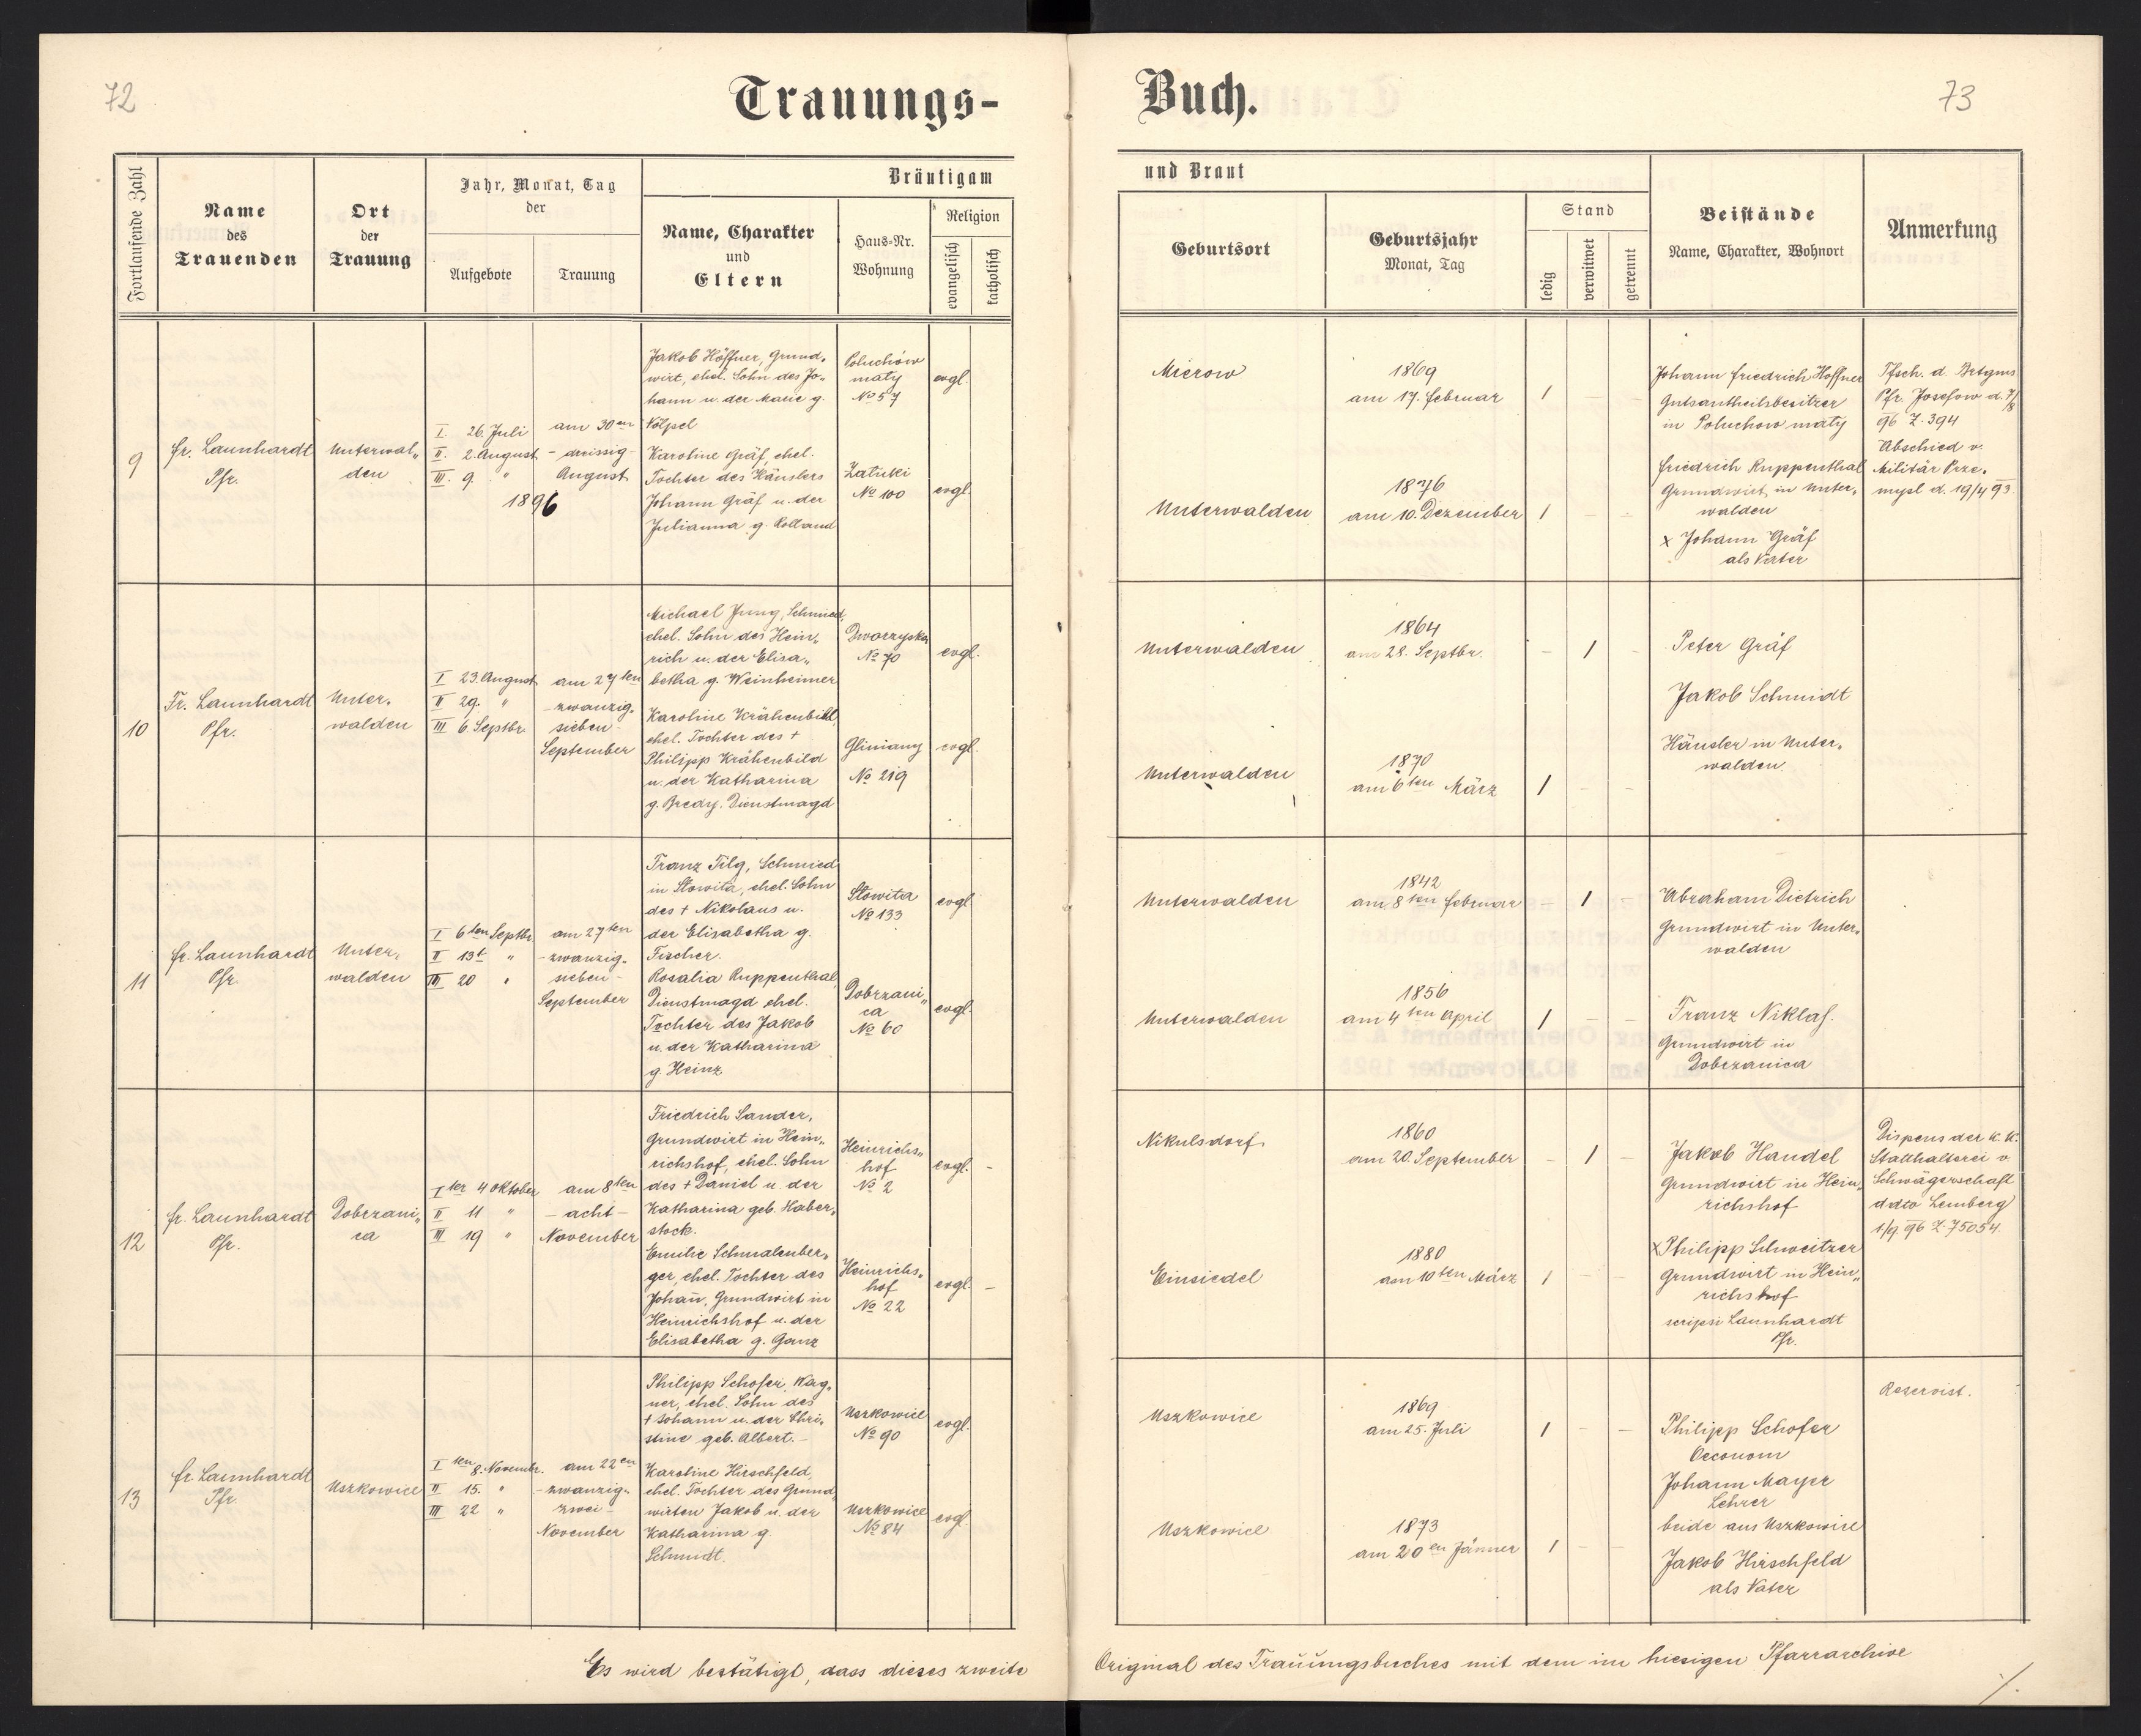 72
Trauungs-
Buch.
73
Fortlaufende Zahl
Name
des
Trauenden
Ort
der
Trauung
Jahr, Monat, Tag
der
Aufgebote
Trauung
Bräutigam
und Braut
Name, Charakter
und
Eltern
Haus-Nr.
Wohnung
Religion
evangelisch
katholisch
Geburtsort
Geburtsjahr
Monat, Tag
Stand
ledig
verwitwet
getrennt
Beistände
Name, Charakter, Wohnort
Anmerkung
9
Fr. Launhardt
Pfr.
Unterwal„
den
I. 26. Juli
II. 2. August
III. 9. "
1896
am 30en
- dreissig -
August
Jakob Höffner, Grund„
wirt, ehel. Sohn des Jo„
hann u. der Marie g.
Völpel
Karoline Gräf, ehel.
Tochter des Häuslers
Johann Gräf u. der
Julianna g. Rolland
Poluchów
maty
No 57
Zatuki
No 100
evgl.
evgl.
Mierow
1869
am 17. Februar
1
Unterwalden
1876
am 10. Dezember
1 - -
Johann Friedrich Höffner
Gutsantheilsbesitzer
in Poluchow maty
Friedrich Ruppenthal
Grundwirt in Unter„
walden
x Johann Gräf
als Vater
Tfsch. d. Brtgms
Pfr. Josefow d. 7/8
96 Z. 394
Abschied v.
Militär Prze„
mysl d. 19/4 93.
10
Fr. Launhardt
Pfr.
Unter„
walden
I 23. August
II 29. "
III 6. Septbr.
am 27ten
- zwanzig„
sieben -
September
Michael Jung, Schmied,
ehel. Sohn des Hein„
rich u. der Elisa„
betha g. Weinheimer
Karoline Krähenbild,
ehel. Tochter des †
Philipp Krähenbild
u. der Katharina
g. Bredy. Dienstmagd
No 70
Gliniany
No 219
evgl.
evgl.
Unterwalden
1864
am 28. Septbr.
- 1 -
Unterwalden
1870
am 6ten März
1 - -
Peter Gräf
Jakob Schmidt
Häusler in Unter„
walden
11
Fr. Launhardt
Pfr.
Unter„
walden
I 6ten Septbr.
II 13t "
III 20 "
am 27ten
- zwanzig„
sieben -
September
Franz Tilg, Schmied
in Slowita, ehel. Sohn
des † Nikolaus u.
der Elisabetha g.
Fischer.
Rosalia Ruppenthal,
Dienstmagd ehel.
Tochter des Jakob
u. der Katharina
g. Heinz
Slowita
No 133
Dobrzani„
ca
No 60
evgl.
evgl.
Unterwalden
1842
am 8ten Februar
- 1 -
Unterwalden
1856
am 4ten April
1 - -
Abraham Dietrich
Grundwirt in Unter„
walden
Franz Niklas.
Grundwirt in
Dobrzanica
12
Fr. Launhardt
Pfr.
Dobrzani„
ca
Iter 4 Oktober
II 11 "
III 19 "
am 8ten
- acht -
November
Friedrich Sander,
Grundwirt in Hein„
richshof, ehel. Sohn
des † Daniel u. der
Katharina geb. Haber„
stock.
Emilie Schmalenber„
ger, ehel. Tochter des
Johañ, Grundwirt in
Heinrichshof u. der
Elisabetha g. Ganz
Heinrichs„
hof
No 2
Heinrichs„
hof
No 22
evgl. -
evgl. -
Nikulsdorf
1860
am 20. September
- 1 -
Einsiedel
1880
am 10ten März
1 - -
Jakob Handel
Grundwirt in Hein„
richshof
x Philipp Schweitzer
Grundwirt in Hein„
richshof
scripsi Launhardt
Pfr.
Dispens der k. k.
Statthalterei v.
Schwägerschaft
ddto Lemberg
1/9. 96 Z. 75054.
13
Fr. Launhardt
Pfr.
Uszkowice
I ten 8. Novembr.
II 15. "
III 22 "
am 22en
- zwanzig„
zwei -
November
Philipp Schofer, Wag„
ner, ehel. Sohn des
† Johann u. der Chri„
stine geb. Albert. -
Karoline Hirschfeld,
ehel. Tochter des Grund„
wirten Jakob u. der
Katharina g.
Schmidt.
Uszkowice
No 90
Uszkowice
No 84
evgl.
evgl.
Uszkowice
1869
am 25. Juli
1 - -
Uszkowice
1873
am 20en Jänner
1 - -
Philipp Schofer
Oeconom
Johann Mayer
Lehrer
beide aus Uszkowice
Jakob Hirschfeld
als Vater
Reservist.
Es wird bestätigt, dass dieses zweite
Original des Trauungsbuches mit dem im hiesigen Pfarrarchive